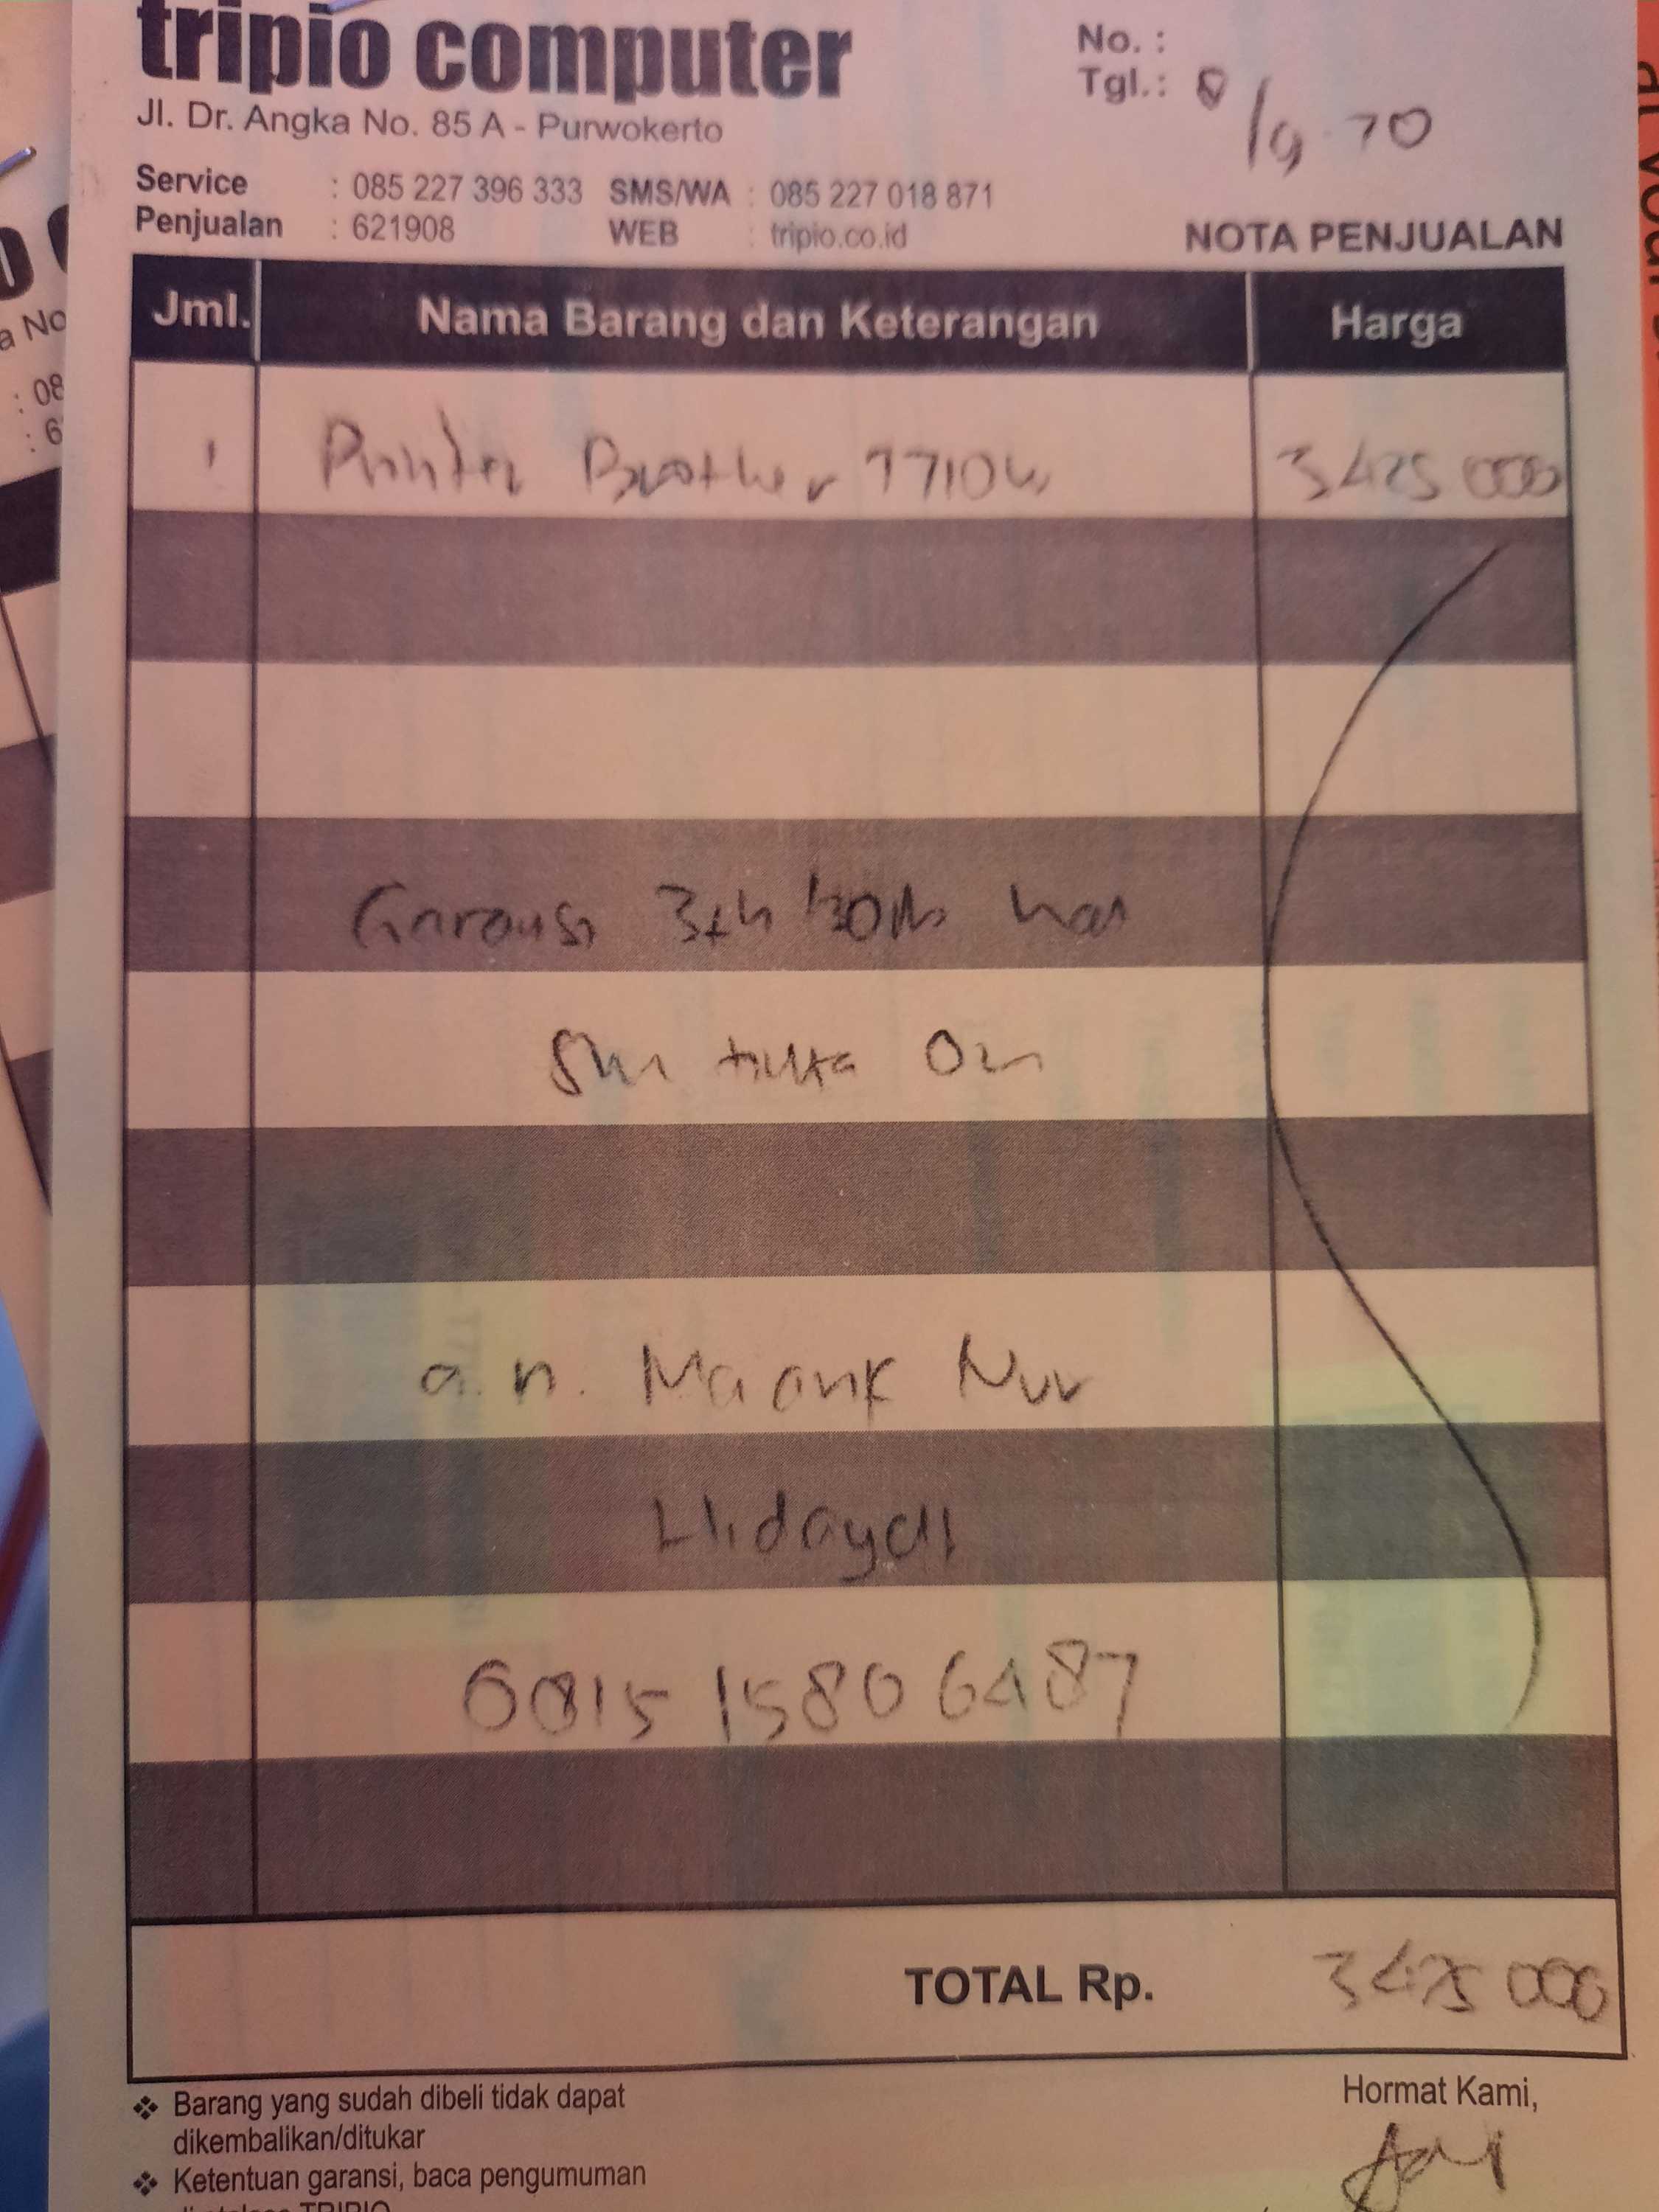 tripio computer
Jl. Dr. Angka No. 85 A - Purwokerto
No. :
Tgl. : 8/9-20
Service : 085 227 396 333 SMS/WA : 085 227 018 871
Penjualan : 621908 WEB : tripio.co.id
NOTA PENJUALAN
Jml. Nama Barang dan Keterangan Harga
1 Printer Brother T710W 3425 000
Garansi 3th /30rb
tinta Ori
a.n. Ma Nur
Hidayah
0815 1580 6487
TOTAL Rp. 3425 000
Barang yang sudah dibeli tidak dapat
dikembalikan/ditukar
Ketentuan garansi, baca pengumuman
TRIPIO
Hormat Kami,